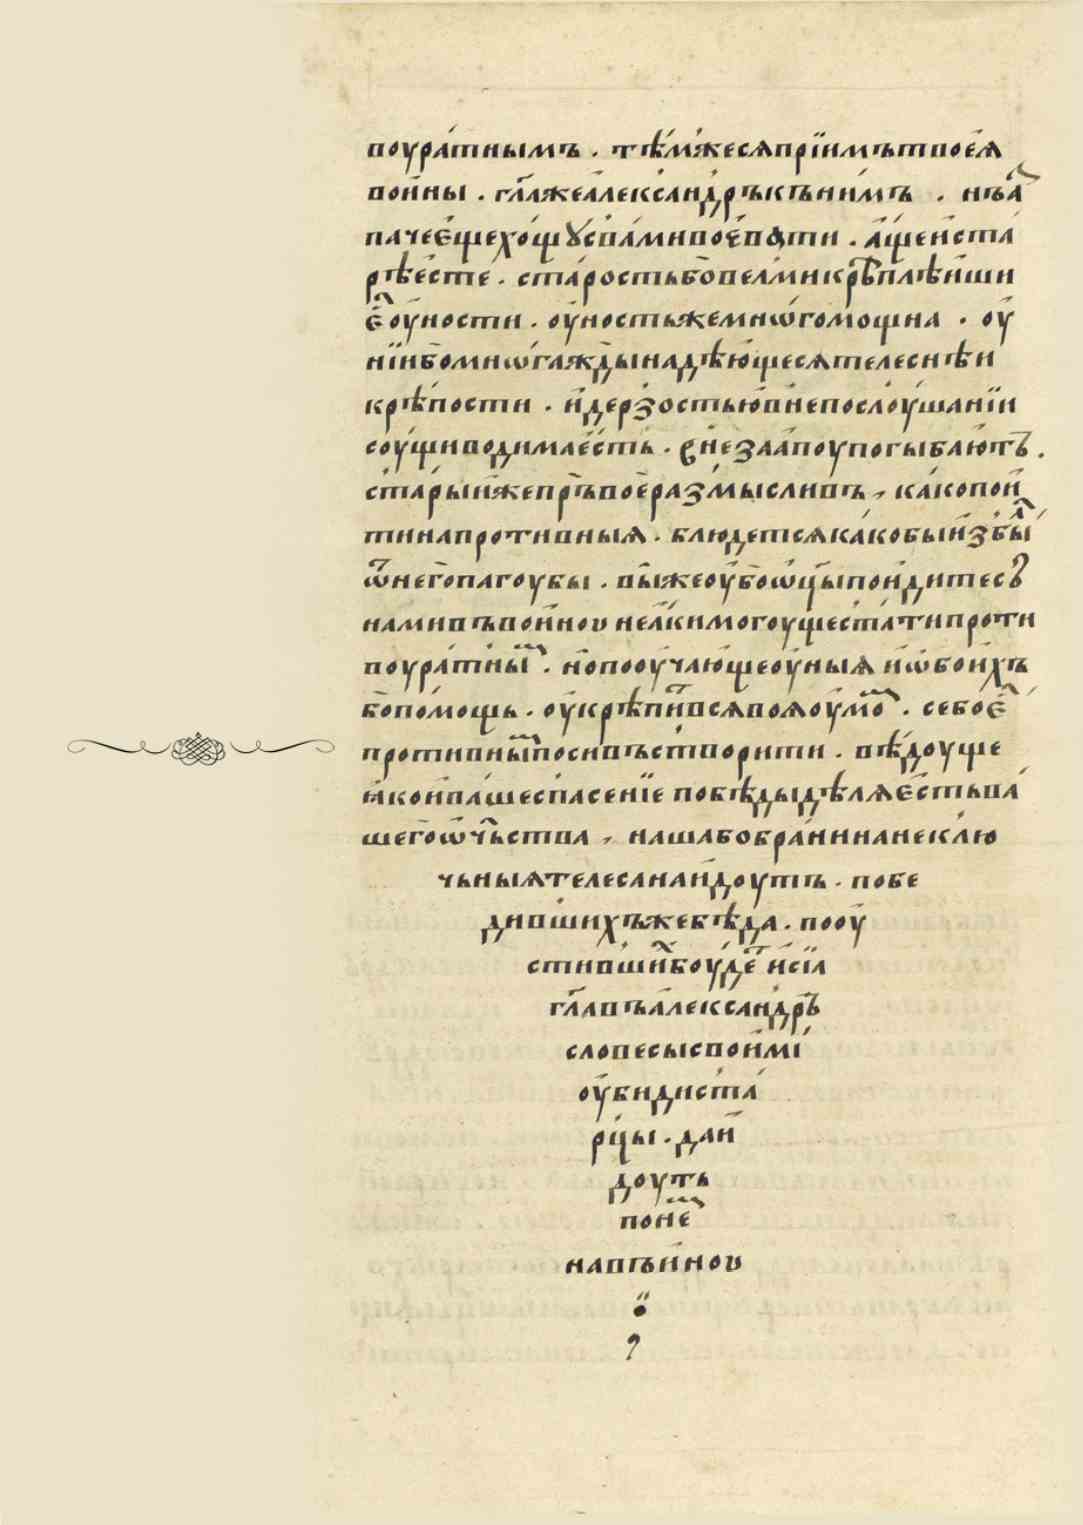 воура́тнымъ . тѣ́мже ся прїимъ твоея̀
во́йны . гл҃а же алеѯандръ къ ни́мъ . нъ а҆
па́че е҆ще хо́щꙋ с ва́ми вое҆ва́ти . а҆́ще и҆ ста́
рѣ́ есте . ста́рость бо̀ велми крѣ́плѣйши
е҆ оу҆́ности . оу҆́ность же мнѡ́го мощна . оу҆
нїи бо мнѡ́гажды надѣю́ще ся телеснѣи
крѣ́пости . и҆ де́рзостью в непослоу́шанїи
соу́щи водима е҆́сть .
ста́рыи же пръвое размысливъ , ка́ко пои
ти на противныя . блюдет ся ка́ко бы и҆збы
ѿ него̀ пагоубы . вы́ же оу҆́бо ѡ҆тцы пои́дите с
нами въ войноу не а҆́ки могоуще ста́ти проти
воура́тны . но поoу҆ча́юще оу҆́ныя и҆ ѡ҆бои́хъ
бо по́мощь . оу҆крѣпи вся воя оу҆мо . себо е҆
противны посивъ створити . вѣ́доуще
ꙗ҆́ко и҆ ва́ше спасенїе побѣ́ды дѣ́ля е҆́сть ва́
шего̀ ѡ҆ч҃ьства , наша бо брани на неклю
чьныя телеса наи́доуть . побе
дивши́хъ же бѣ́да . пооу҆
стивши́ боу́де и҆ си́л
гл҃авъ а҆леѯандръ
словесы свои́ми
оу҆бидиста́
рцы . даи҆
доуть
по не
на въи́ноу